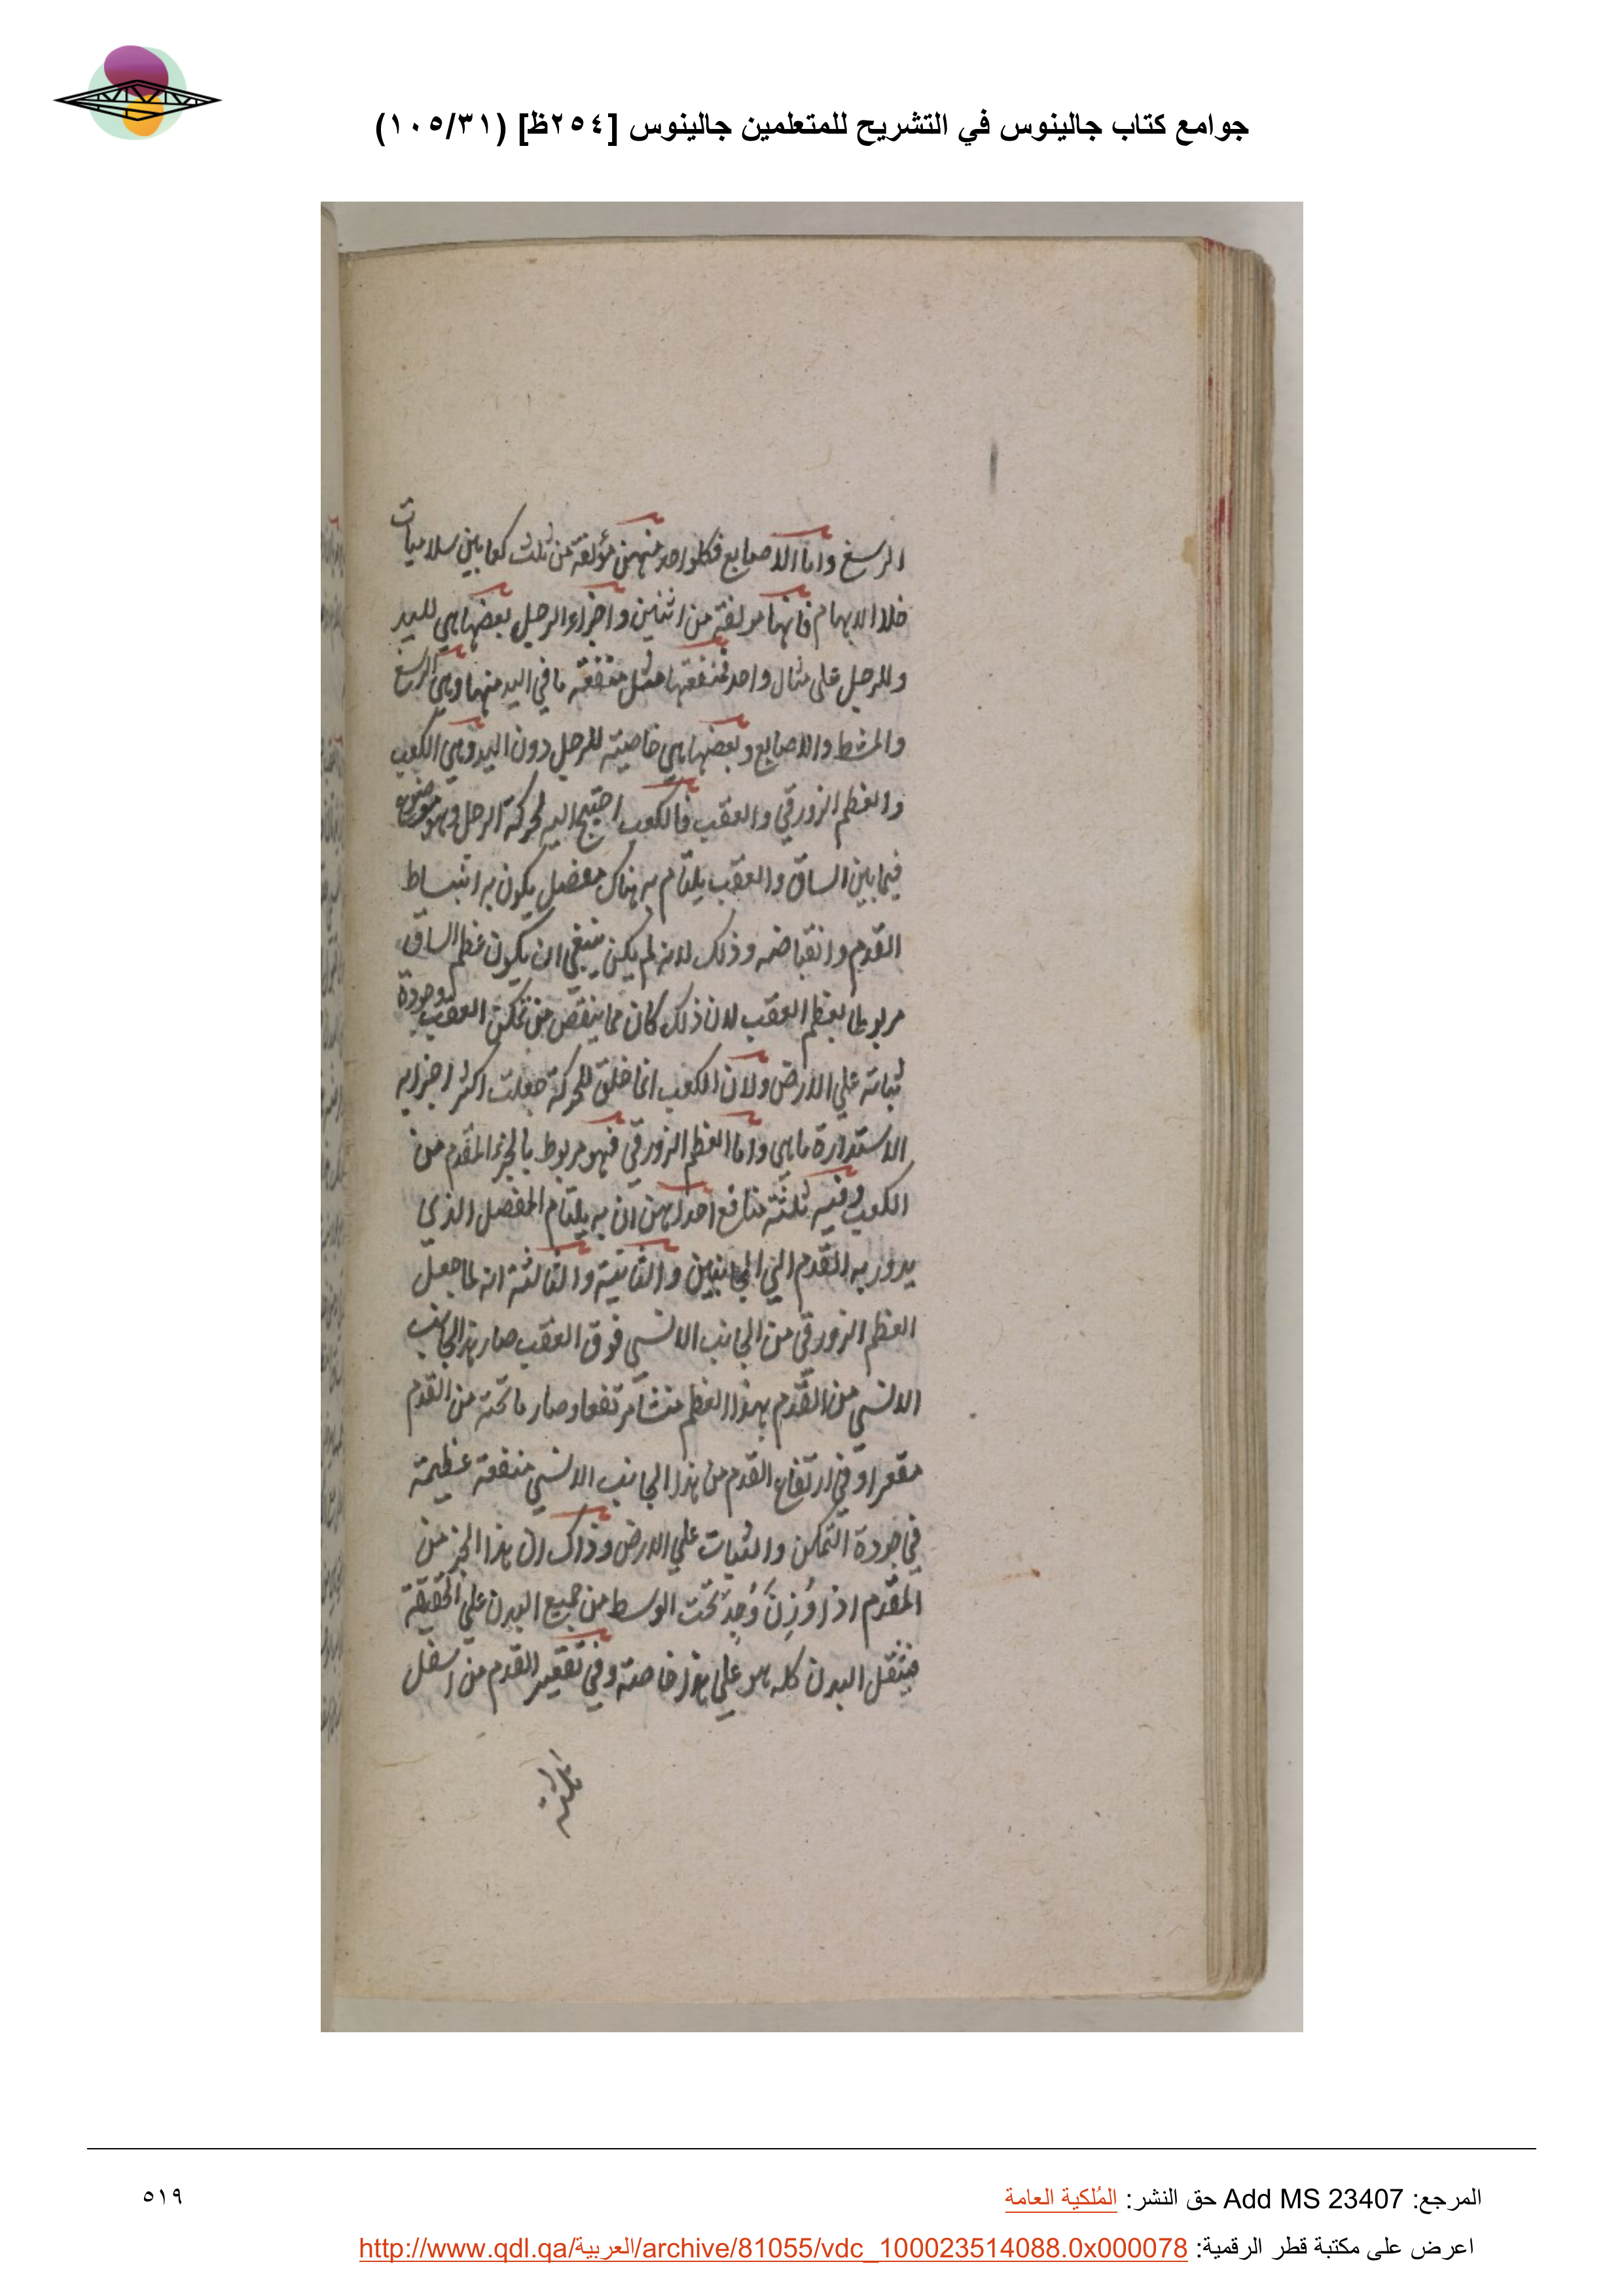 جوامع كتاب جالينوس في التشريح للمتعلمين جالينوس [٢٥٤ظ] (١٠٥/٣١)
الرسغ واما الاصابع فكلواحد منهن مؤلفة من ثلث كعابين سلاميات
خلا الابهام فانها مولفة من اثنين واجزاء الرجل بعضها هي لليد
وللرجل على مثال واحد فمنفعتها مثل منفعة ما في اليد منها وهي الرسغ
والمشط والاصابع وبعضها هي خاصية للرجل دون اليد وهي الكعب
والعظم الزورقي والعقب فالكعب احتيج اليه لحركة الرجل وهو موضوع
فيما بين الساق والعقب يلتام به هناك مفصل يكون به انبساط
القدم وانقباضه وذلك لانه لم يكن ينبغي ان يكون عظم الساق
مربوطا بعظم العقب لان ذلك كان مما ينقص من تمكن العقب وجودة
ثباته علي الارض ولان الكعب انما خلق للحركة جعلت اكثر اجزايه
الاستدارة ماهي واما العظم الزورقي فهو مربوط بالجزء المقدم من
الكعب وفيه ثلثة منافع احداهن ان به يلتام المفصل الذي
يدور به القدم الي الجانبين والثانية والثالثة انه لما جعل
العظم الزورقي من الجانب الانسي فوق العقب صار هذا الجانب
الانسي من القدم بهذا العظم منشا مرتفعا وصار ما تحته من القدم
مقعرا وفي ارتفاع القدم من هذا الجانب الانسي منفعة عظيمة
في جودة التمكن والثبات علي الارض وذاك ان هذا الجز من
المقدم اذا وُزِنَ وُجِدَ تحت الوسط من جميع البدن علي الحقيقة
فيثقل البدن كله هو علي هذا خاصة وفي تقعير القدم من اسفل
المرجع: Add MS 23407 حق النشر: المُلكية العامة
٥١٩
اعرض على مكتبة قطر الرقمية: http://www.qdl.qa/العربية/archive/81055/vdc_100023514088.0x000078